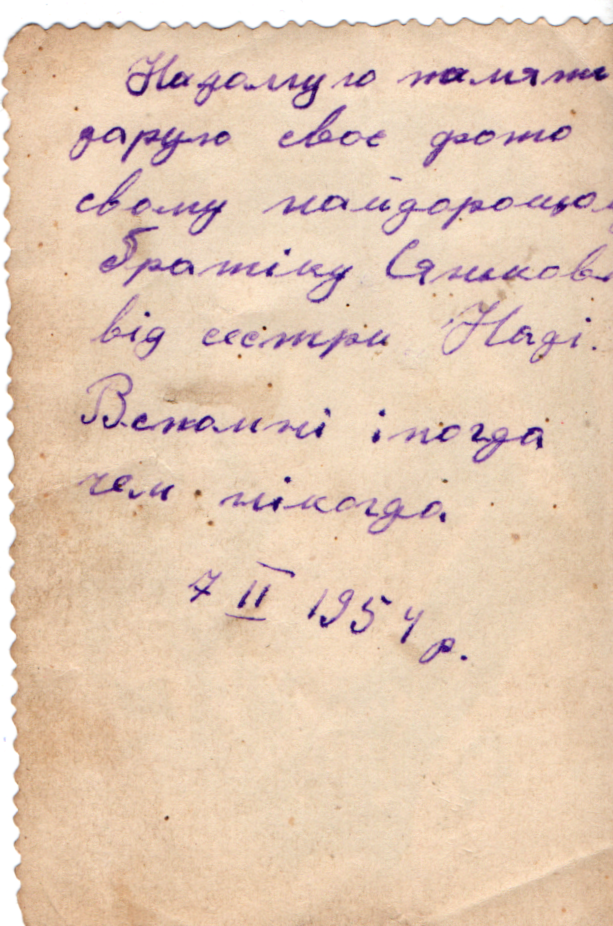 На долгую память
дарую своє фото
свому найдорощому
братіку
від сестри Наді.
Вспомні іногда
чем нікогда
7 II 1954 р.